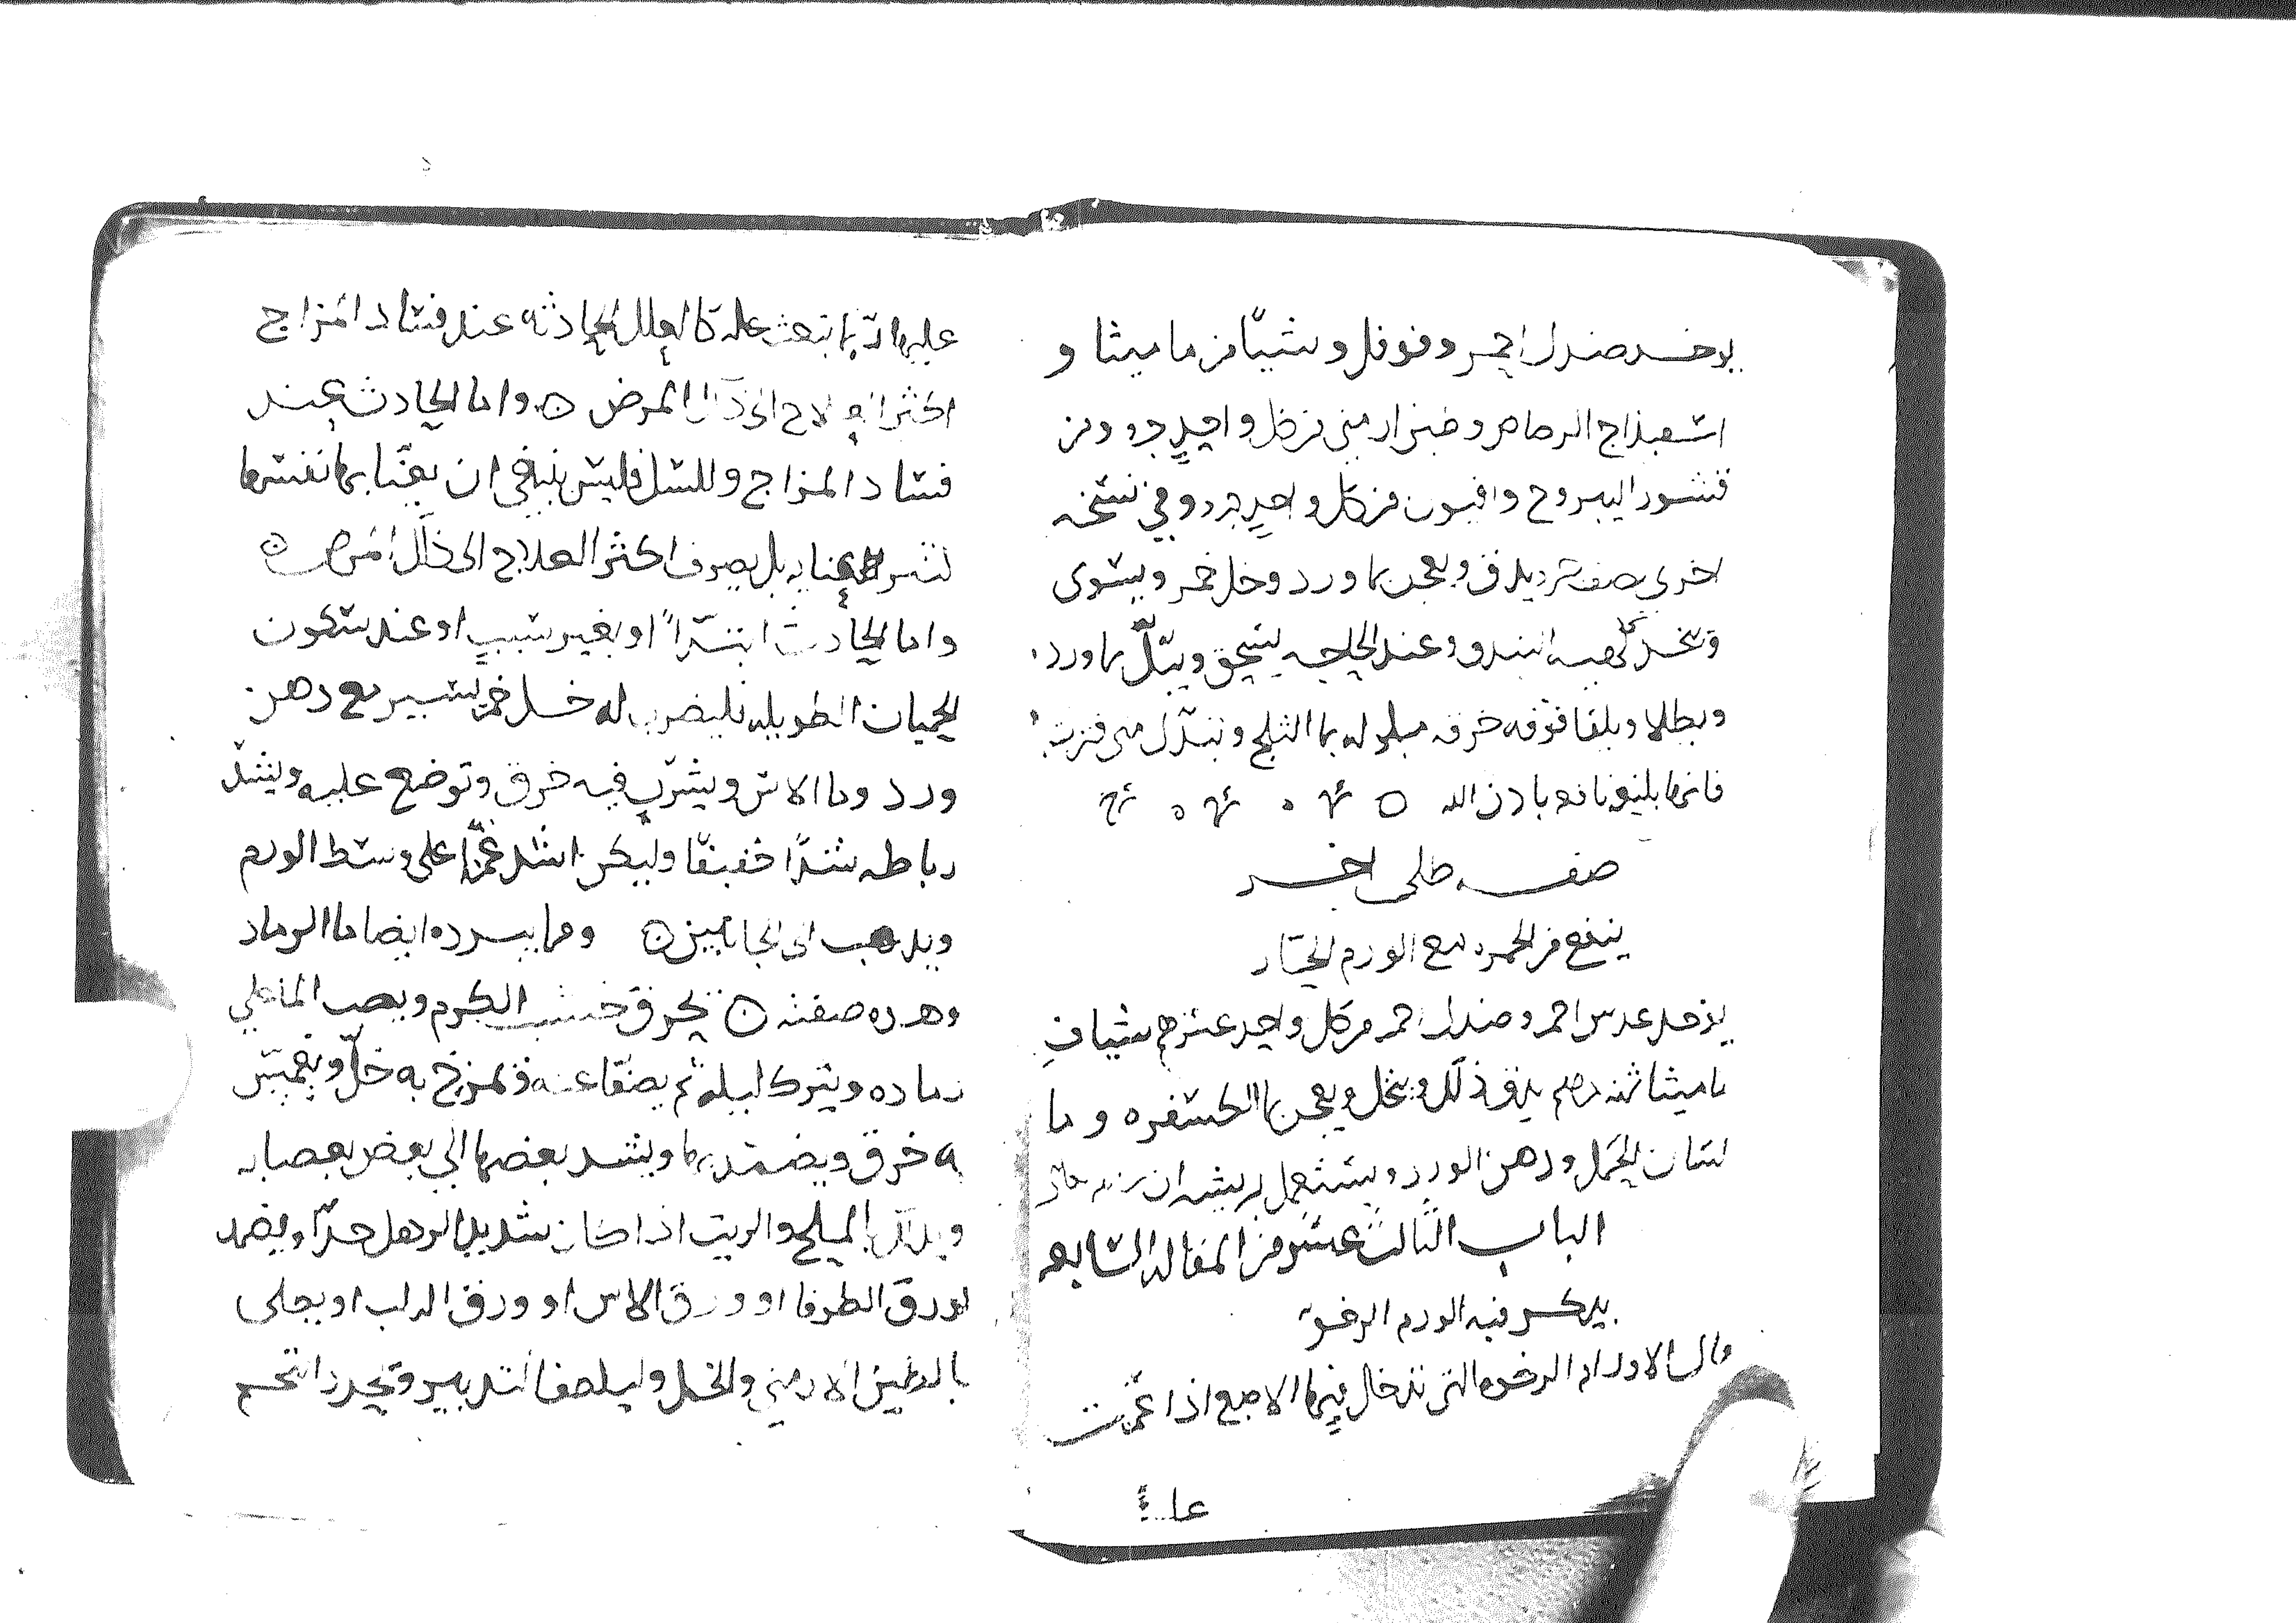 يوخد صندل احمر وفوفل وشيّافن ماميثا و
اسفيذاج الرصاص وطين ارمني من كل واحدٍ جزو ومن
قشور اليبروح وافيون من كل واحدٍ جزو وفي نسخه
اخري نصف جزو يدق ويعجن بما ورد وخل خمر ويسوى
ويتخد كهية البندق وعند الحاجه يسحق ويبلّ بما ورد
ويطلا ويلقا فوقه خرقه مبلوله بما الثلج وتبدّل متى فترت
فانها بليغ نافع بادن الله
صفه طلى اخر
ينفع من الحمره مع الورم الحار
يوخد عدس احمر وصندل احمر من كل واحد عشره شياف
ماميثا ثمنه درهم يدق ذلك وينخل ويعجن بما الكسفره وما
لسان الحمل ودهن الورد ويستعمل بريشه ان
الباب الثالث عشر من المقاله السابعه
يدكر فيه الورم الرخو
قال الاورام الرخوه التي تدخل فيها الاصبع اذا غمزت
عليها
عليها انما تبعث عله كالعلل الحادثه عند فساد المزاج
اكثر العلاج الى ذلك المرض واما الحادث عند
فساد المزاج وللسل فليس ينبغي ان يعنا بها نفسها
كثير عنايه بل يصرف اكثر العلاج الى ذلك المرض
واما الحادث ابتداً او بغير سببٍ او عند سكون
الحميات الطويله فليضرب له خل خمر يسير مع دهن
ورد وما الاس ويشرّب فيه خرق وتوضع عليه ويشدّ
رباطه شدًا خفيفًا وليكن اشد غمزًا على وسط الورم
ويدهب الى الجانبين ومما يبرده ايضا ما الرماد
وهده صفته يحرق خشب الكرم ويصب الما على
رماده ويترك ليله ثم يصفّا عنه ويمزج به خلّ ويغمس
به خرق ويضمد بها ويشد بعضها الي بعض بعصابه
ويدلك بالملح والزيت اذا كان شديد الرهل جدّا ويضمد
بورق الطرفا او ورق الاس او ورق الدلب او يطلى
بالطين الارمني والخل وليلطفا التدبير ويجرد التخم